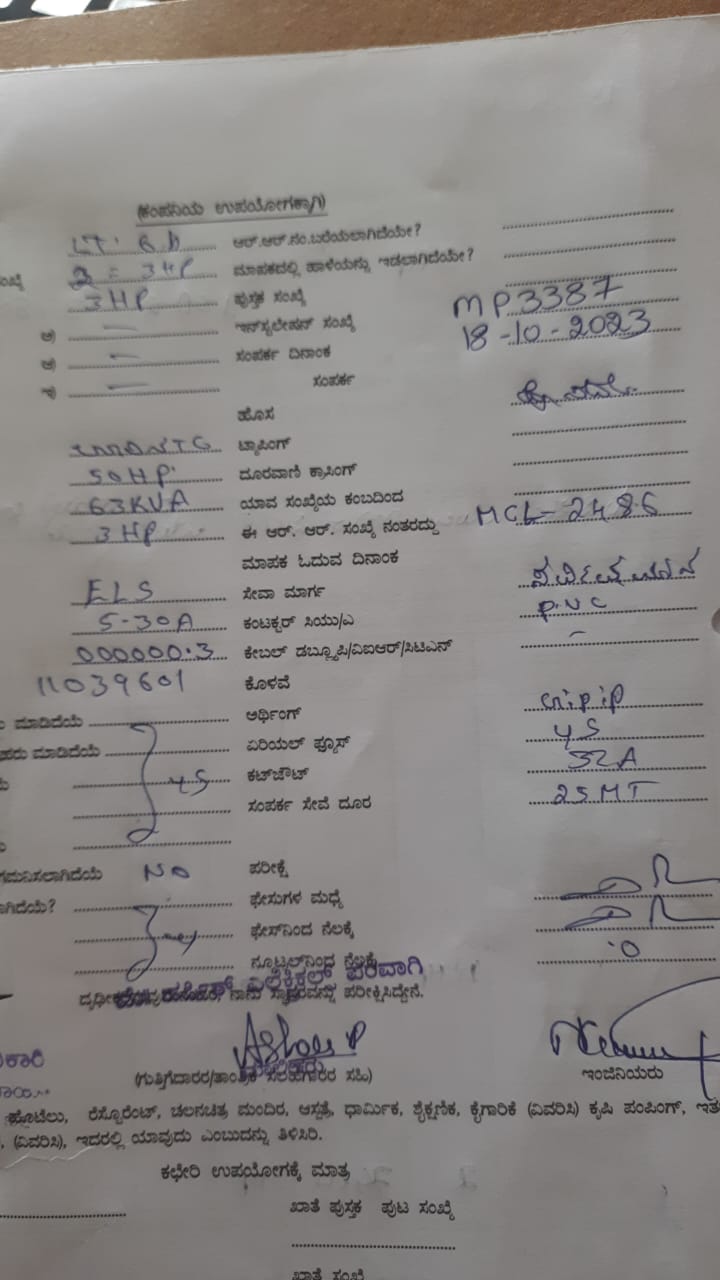 (ಕಂಪನಿಯ ಉಪಯೋಗಕ್ಕಾಗಿ)
LT. 6 ಆರ್.ಆರ್.ನಂ.ಬರೆಯಲಾಗಿದೆಯೇ?
ಸಂಖ್ಯೆ 2 = 3HP ಮಾಪಕದಲ್ಲಿ ಹಾಳೆಯನ್ನು ಇಡಲಾಗಿದೆಯೇ?
3HP ಪುಸ್ತಕ ಸಂಖ್ಯೆ MP3387
ಇನ್‌ಸ್ಟಲೇಷನ್ ಸಂಖ್ಯೆ 18-10-2023
ಸಂಪರ್ಕ ದಿನಾಂಕ
ಸಂಪರ್ಕ
ಹೊಸ
ಟ್ಯಾಪಿಂಗ್
50HP. ದೂರವಾಣಿ ಕ್ರಾಸಿಂಗ್
63KVA ಯಾವ ಸಂಖ್ಯೆಯ ಕಂಬದಿಂದ
3HP ಈ ಆರ್. ಆರ್. ಸಂಖ್ಯೆ ನಂತರದ್ದು MCL-2486
ಮಾಪಕ ಓದುವ ದಿನಾಂಕ
ELS ಸೇವಾ ಮಾರ್ಗ
5-30A ಕಂಟಕ್ಟರ್ ಸಿಯು/ಎ P.V.C
000000.3 ಕೇಬಲ್ ಡಬ್ಲ್ಯೂಪಿ/ವಿಐಆರ್/ಸಿಟಿಎಸ್ -
11039601 ಕೊಳವೆ
ಮಾಡಿದೆಯೆ ಅರ್ಥಿಂಗ್ G.I.P.I.P
ಮಾಡಿದೆಯೆ ಏರಿಯಲ್ ಫ್ಯೂಸ್ YS
YS ಕಟ್‌ಔಟ್ 32A
ಸಂಪರ್ಕ ಸೇವೆ ದೂರ 25MT
ಗಮನಿಸಲಾಗಿದೆಯೆ NO ಪರೀಕ್ಷೆ
ಫೇಸುಗಳ ಮಧ್ಯೆ
ಫೇಸ್‌ನಿಂದ ನೆಲಕ್ಕೆ
ನ್ಯೂಟ್ರಲ್‌ನಿಂದ ನೆಲಕ್ಕೆ 0
ಎಲೆಕ್ಟ್ರಿಕಲ್ ಪರವಾಗಿ
ನಾನು ಸ್ಥಾವರವನ್ನು ಪರೀಕ್ಷಿಸಿದ್ದೇನೆ.
Ashok P
(ಗುತ್ತಿಗೆದಾರರ/ತಾಂತ್ರಿಕ ಸಲಹೆಗಾರರ ಸಹಿ) ಇಂಜಿನಿಯರು
ಹೊಟೆಲು, ರೆಸ್ಟೋರೆಂಟ್, ಚಲನಚಿತ್ರ ಮಂದಿರ, ಆಸ್ಪತ್ರೆ, ಧಾರ್ಮಿಕ, ಶೈಕ್ಷಣಿಕ, ಕೈಗಾರಿಕೆ (ವಿವರಿಸಿ) ಕೃಷಿ ಪಂಪಿಂಗ್,
(ವಿವರಿಸಿ), ಇದರಲ್ಲಿ ಯಾವುದು ಎಂಬುದನ್ನು ತಿಳಿಸಿರಿ.
ಕಛೇರಿ ಉಪಯೋಗಕ್ಕೆ ಮಾತ್ರ
ಖಾತೆ ಪುಸ್ತಕ ಪುಟ ಸಂಖ್ಯೆ
ಖಾತೆ ಸಂಖ್ಯೆ